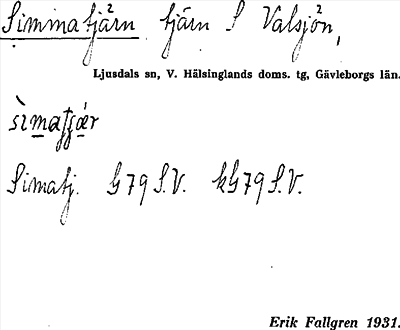 Simmatjärn tjärn S Valsjön,
Ljusdals sn, V. Hälsinglands doms. tg, Gävleborgs län.
Simatj. G79 S.V. kG79 S.V.
Erik Fallgren 1931.